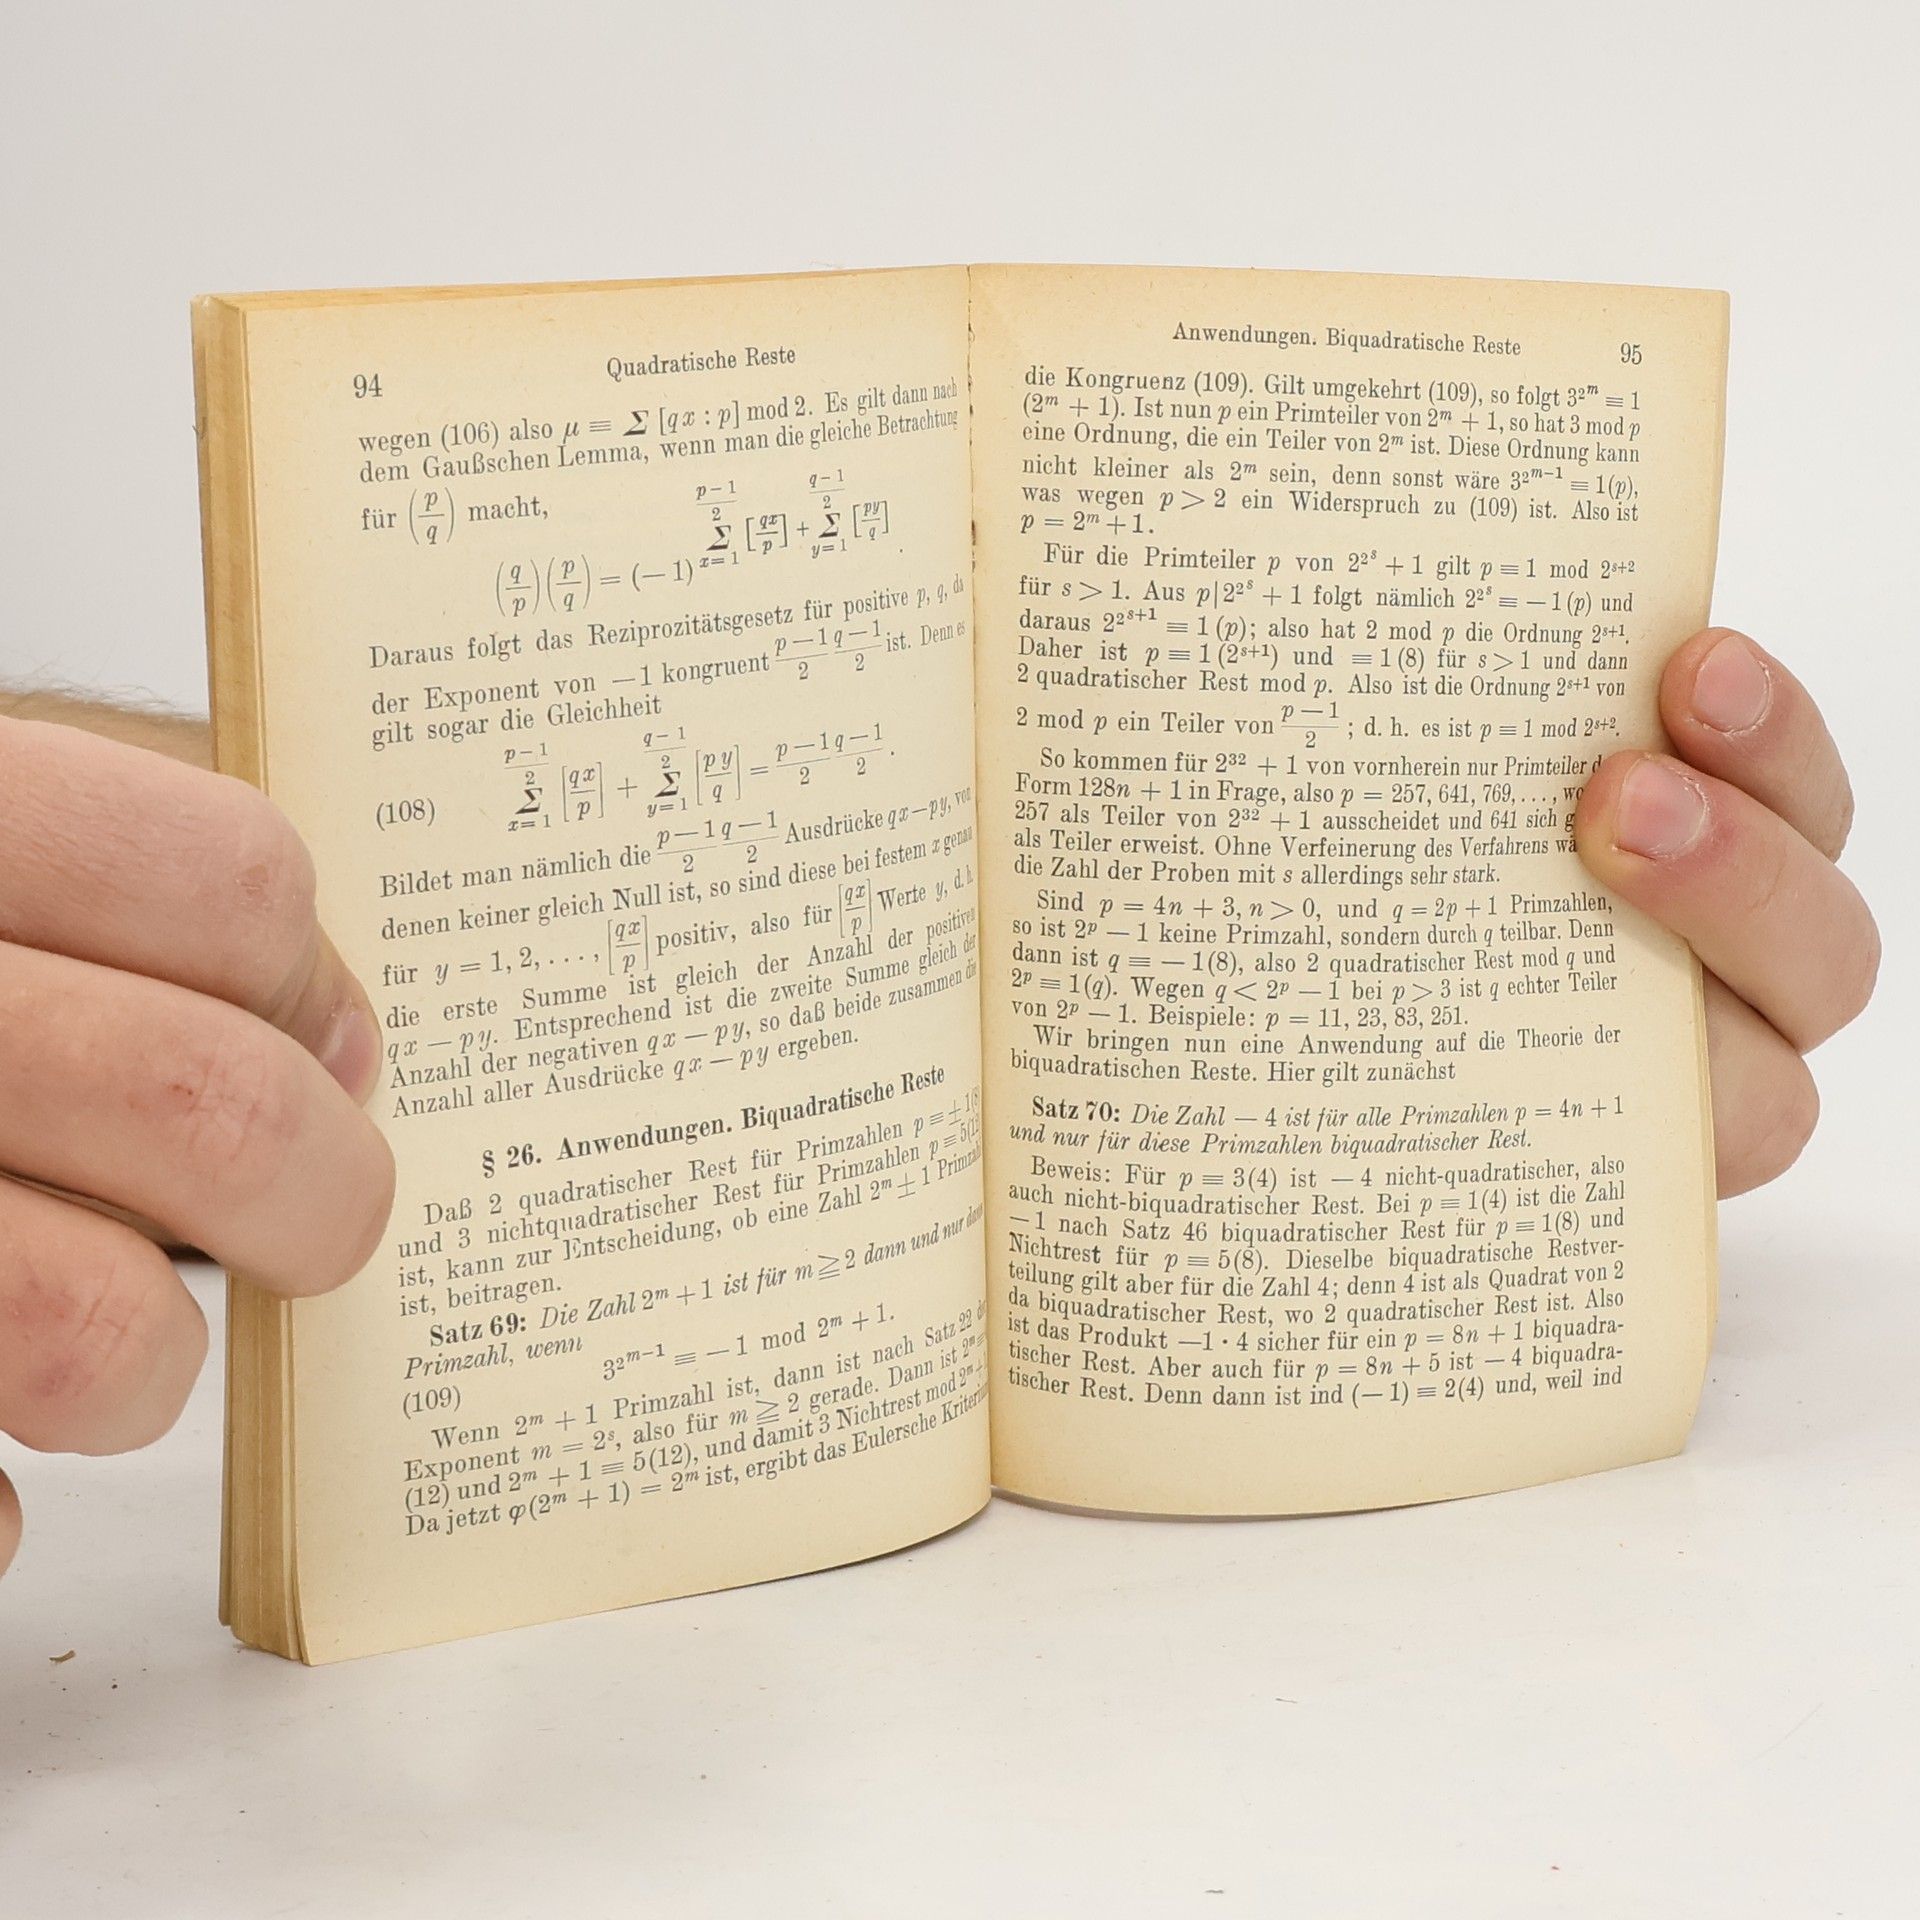 94 Quadratische Reste
wegen (106) also μ ≡ Σ [qx : p] mod 2. Es gilt dann nach
dem Gaußschen Lemma, wenn man die gleiche Betrachtung
für (p/q) macht,
(q/p)(p/q) = (−1)^{Σ_{x=1}^{(p−1)/2} [qx/p] + Σ_{y=1}^{(q−1)/2} [py/q]}.
Daraus folgt das Reziprozitätsgesetz für positive p, q, da
der Exponent von −1 kongruent (p−1)/2 (q−1)/2 ist. Denn es
gilt sogar die Gleichheit
(108) Σ_{x=1}^{(p−1)/2} [qx/p] + Σ_{y=1}^{(q−1)/2} [py/q] = (p−1)/2 (q−1)/2.
Bildet man nämlich die (p−1)/2 (q−1)/2 Ausdrücke qx−py, von
denen keiner gleich Null ist, so sind diese bei festem x genau
für y = 1, 2, . . . , [qx/p] positiv, also für [qx/p] Werte y, d. h.
die erste Summe ist gleich der Anzahl der positiven
qx − py. Entsprechend ist die zweite Summe gleich der
Anzahl der negativen qx − py, so daß beide zusammen die
Anzahl aller Ausdrücke qx − py ergeben.
§ 26. Anwendungen. Biquadratische Reste
Daß 2 quadratischer Rest für Primzahlen p ≡ ±1(8)
und 3 nichtquadratischer Rest für Primzahlen p ≡ 5(12)
ist, kann zur Entscheidung, ob eine Zahl 2^m ± 1 Primzahl
ist, beitragen.
Satz 69: Die Zahl 2^m + 1 ist für m ≧ 2 dann und nur dann
Primzahl, wenn
(109) 3^{2^{m−1}} ≡ −1 mod 2^m + 1.
Wenn 2^m + 1 Primzahl ist, dann ist nach Satz 22 der
Exponent m = 2^s, also für m ≧ 2 gerade. Dann ist 2^m ≡
(12) und 2^m + 1 ≡ 5(12), und damit 3 Nichtrest mod 2^m + 1.
Da jetzt φ(2^m + 1) = 2^m ist, ergibt das Eulersche Kriterium
Anwendungen. Biquadratische Reste 95
die Kongruenz (109). Gilt umgekehrt (109), so folgt 3^{2^m} ≡ 1
(2^m + 1). Ist nun p ein Primteiler von 2^m + 1, so hat 3 mod p
eine Ordnung, die ein Teiler von 2^m ist. Diese Ordnung kann
nicht kleiner als 2^m sein, denn sonst wäre 3^{2^{m−1}} ≡ 1(p),
was wegen p > 2 ein Widerspruch zu (109) ist. Also ist
p = 2^m + 1.
Für die Primteiler p von 2^{2^s} + 1 gilt p ≡ 1 mod 2^{s+2}
für s > 1. Aus p|2^{2^s} + 1 folgt nämlich 2^{2^s} ≡ −1(p) und
daraus 2^{2^{s+1}} ≡ 1(p); also hat 2 mod p die Ordnung 2^{s+1}.
Daher ist p ≡ 1(2^{s+1}) und ≡ 1(8) für s > 1 und dann
2 quadratischer Rest mod p. Also ist die Ordnung 2^{s+1} von
2 mod p ein Teiler von (p−1)/2; d. h. es ist p ≡ 1 mod 2^{s+2}.
So kommen für 2^{32} + 1 von vornherein nur Primteiler
Form 128n + 1 in Frage, also p = 257, 641, 769, . . . ,
257 als Teiler von 2^{32} + 1 ausscheidet und 641 sich
als Teiler erweist. Ohne Verfeinerung des Verfahrens
die Zahl der Proben mit s allerdings sehr stark.
Sind p = 4n + 3, n > 0, und q = 2p + 1 Primzahlen,
so ist 2^p − 1 keine Primzahl, sondern durch q teilbar. Denn
dann ist q ≡ −1(8), also 2 quadratischer Rest mod q und
2^p ≡ 1(q). Wegen q < 2^p − 1 bei p > 3 ist q echter Teiler
von 2^p − 1. Beispiele: p = 11, 23, 83, 251.
Wir bringen nun eine Anwendung auf die Theorie der
biquadratischen Reste. Hier gilt zunächst
Satz 70: Die Zahl −4 ist für alle Primzahlen p = 4n + 1
und nur für diese Primzahlen biquadratischer Rest.
Beweis: Für p ≡ 3(4) ist −4 nicht-quadratischer, also
auch nicht-biquadratischer Rest. Bei p ≡ 1(4) ist die Zahl
−1 nach Satz 46 biquadratischer Rest für p ≡ 1(8) und
Nichtrest für p ≡ 5(8). Dieselbe biquadratische Restver-
teilung gilt aber für die Zahl 4; denn 4 ist als Quadrat von 2
da biquadratischer Rest, wo 2 quadratischer Rest ist. Also
ist das Produkt −1 · 4 sicher für ein p = 8n + 1 biquadra-
tischer Rest. Aber auch für p = 8n + 5 ist −4 biquadra-
tischer Rest. Denn dann ist ind (−1) ≡ 2(4) und, weil ind